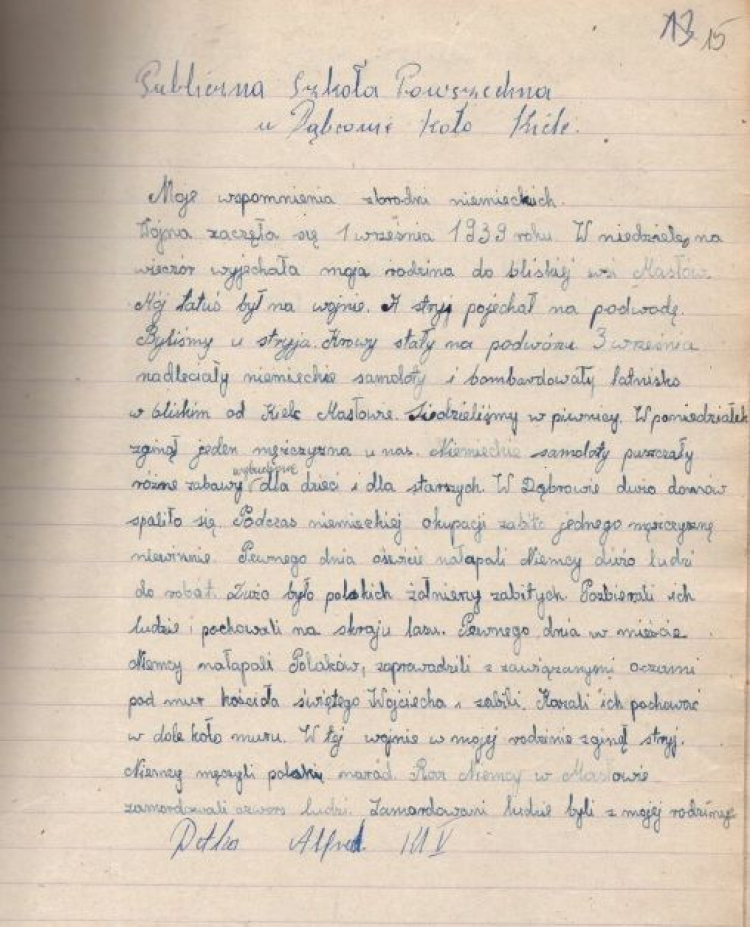 13 15
Publiczna Szkoła Powszechna
w Dąbrowie koło Kielc.
Moje wspomnienia zbrodni niemieckich.
Wojna zaczęła się 1 września 1939 roku. W niedzielę, na
wieczór wyjechała moja rodzina do bliskiej wsi Masłów.
Mój tatuś był na wojnie. A stryj pojechał na podwodę.
Byliśmy u stryja. Krowy stały na podwórzu. 3 września
nadleciały niemieckie samoloty i bombardowały lotnisko
w bliskim od Kielc Masłowie. Siedzieliśmy w piwnicy. W poniedziałek
zginął jeden mężczyzna u nas. Niemieckie samoloty puszczały
wybuchowe
różne zabawy dla dzieci i dla starszych. W Dąbrowie dużo domów
spaliło się. Podczas niemieckiej okupacji zabito jednego mężczyznę
niewinnie. Pewnego dnia o świcie nałapali Niemcy dużo ludzi
do robót. Dużo było polskich żołnierzy zabitych. Pozbierali ich
ludzie i pochowali na skraju lasu. Pewnego dnia w mieście
Niemcy nałapali Polaków, zaprowadzili z zawiązanymi oczami
pod mur kościoła świętego Wojciecha i zabili. Kazali ich pochować
w dole koło muru. W tej wojnie w mojej rodzinie zginął stryj.
Niemcy męczyli polski naród. Raz Niemcy w Masłowie
zamordowali czworo ludzi. Zamordowani ludzie byli z mojej rodziny.
Alfred Kl V